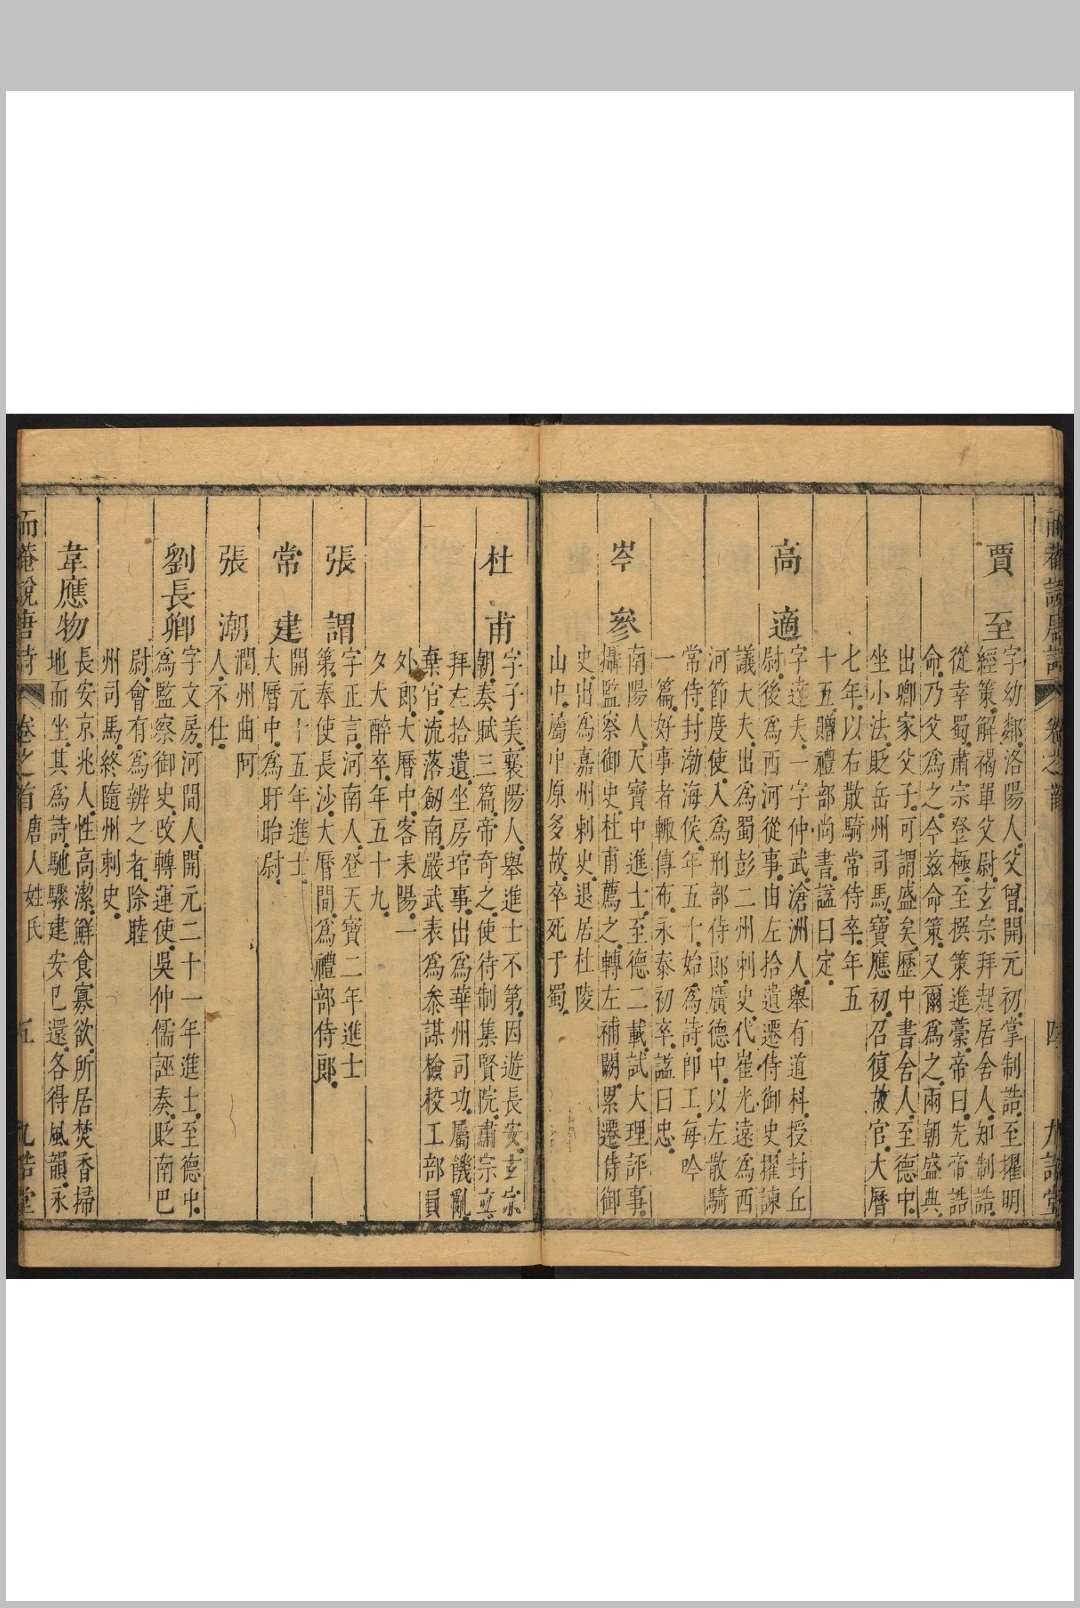 賈至
字幼鄰洛陽人父曾開元初掌制誥至擢明
經策解褐單父尉玄宗拜起居舍人知制誥
從幸蜀肅宗登極至撰策進藁帝曰先帝誥
命乃父爲之今茲命策又爾爲之兩朝盛典
出卿家父子可謂盛矣歷中書舍人至德中
坐小法貶岳州司馬寶應初召復故官大曆
七年以右散騎常侍卒年五
十五贈禮部尚書諡曰定
高適
字達夫一字仲武滄洲人舉有道科授封丘
尉後爲西河從事由左拾遺遷侍御史擢諫
議大夫出爲蜀彭二州刺史代崔光遠爲西
河節度使入爲刑部侍郎廣德中以左散騎
常侍封渤海侯年五十始爲詩卽工每吟
一篇好事者輙傳布永泰初卒諡曰忠
岑參
南陽人天寶中進士至德二載試大理評事
攝監察御史杜甫薦之轉左補闕累遷侍御
史出爲嘉州刺史退居杜陵
山中屬中原多故卒死于蜀
杜甫
字子美襄陽人舉進士不第因遊長安玄宗
朝奏賦三篇帝奇之使待制集賢院肅宗立
拜左拾遺坐房琯事出爲華州司功屬饑亂
棄官流落劒南嚴武表爲叅謀檢校工部員
外郎大曆中客耒陽一
夕大醉卒年五十九
張謂
字正言河南人登天寶二年進士
第奉使長沙大曆間爲禮部侍郎
常建
開元十五年進士
大曆中爲盱眙尉
張潮
潤州曲阿
人不仕
劉長卿
字文房河間人開元二十一年進士至德中
爲監察御史攺轉運使吳仲儒誣奏貶南巴
尉會有爲辨之者除睦
州司馬終隨州刺史
韋應物
長安京兆人性高潔鮮食寡欲所居焚香掃
地而坐其爲詩馳驟建安已還各得風韻永
而菴說唐詩 卷之首 唐人姓氏 五 九誥堂